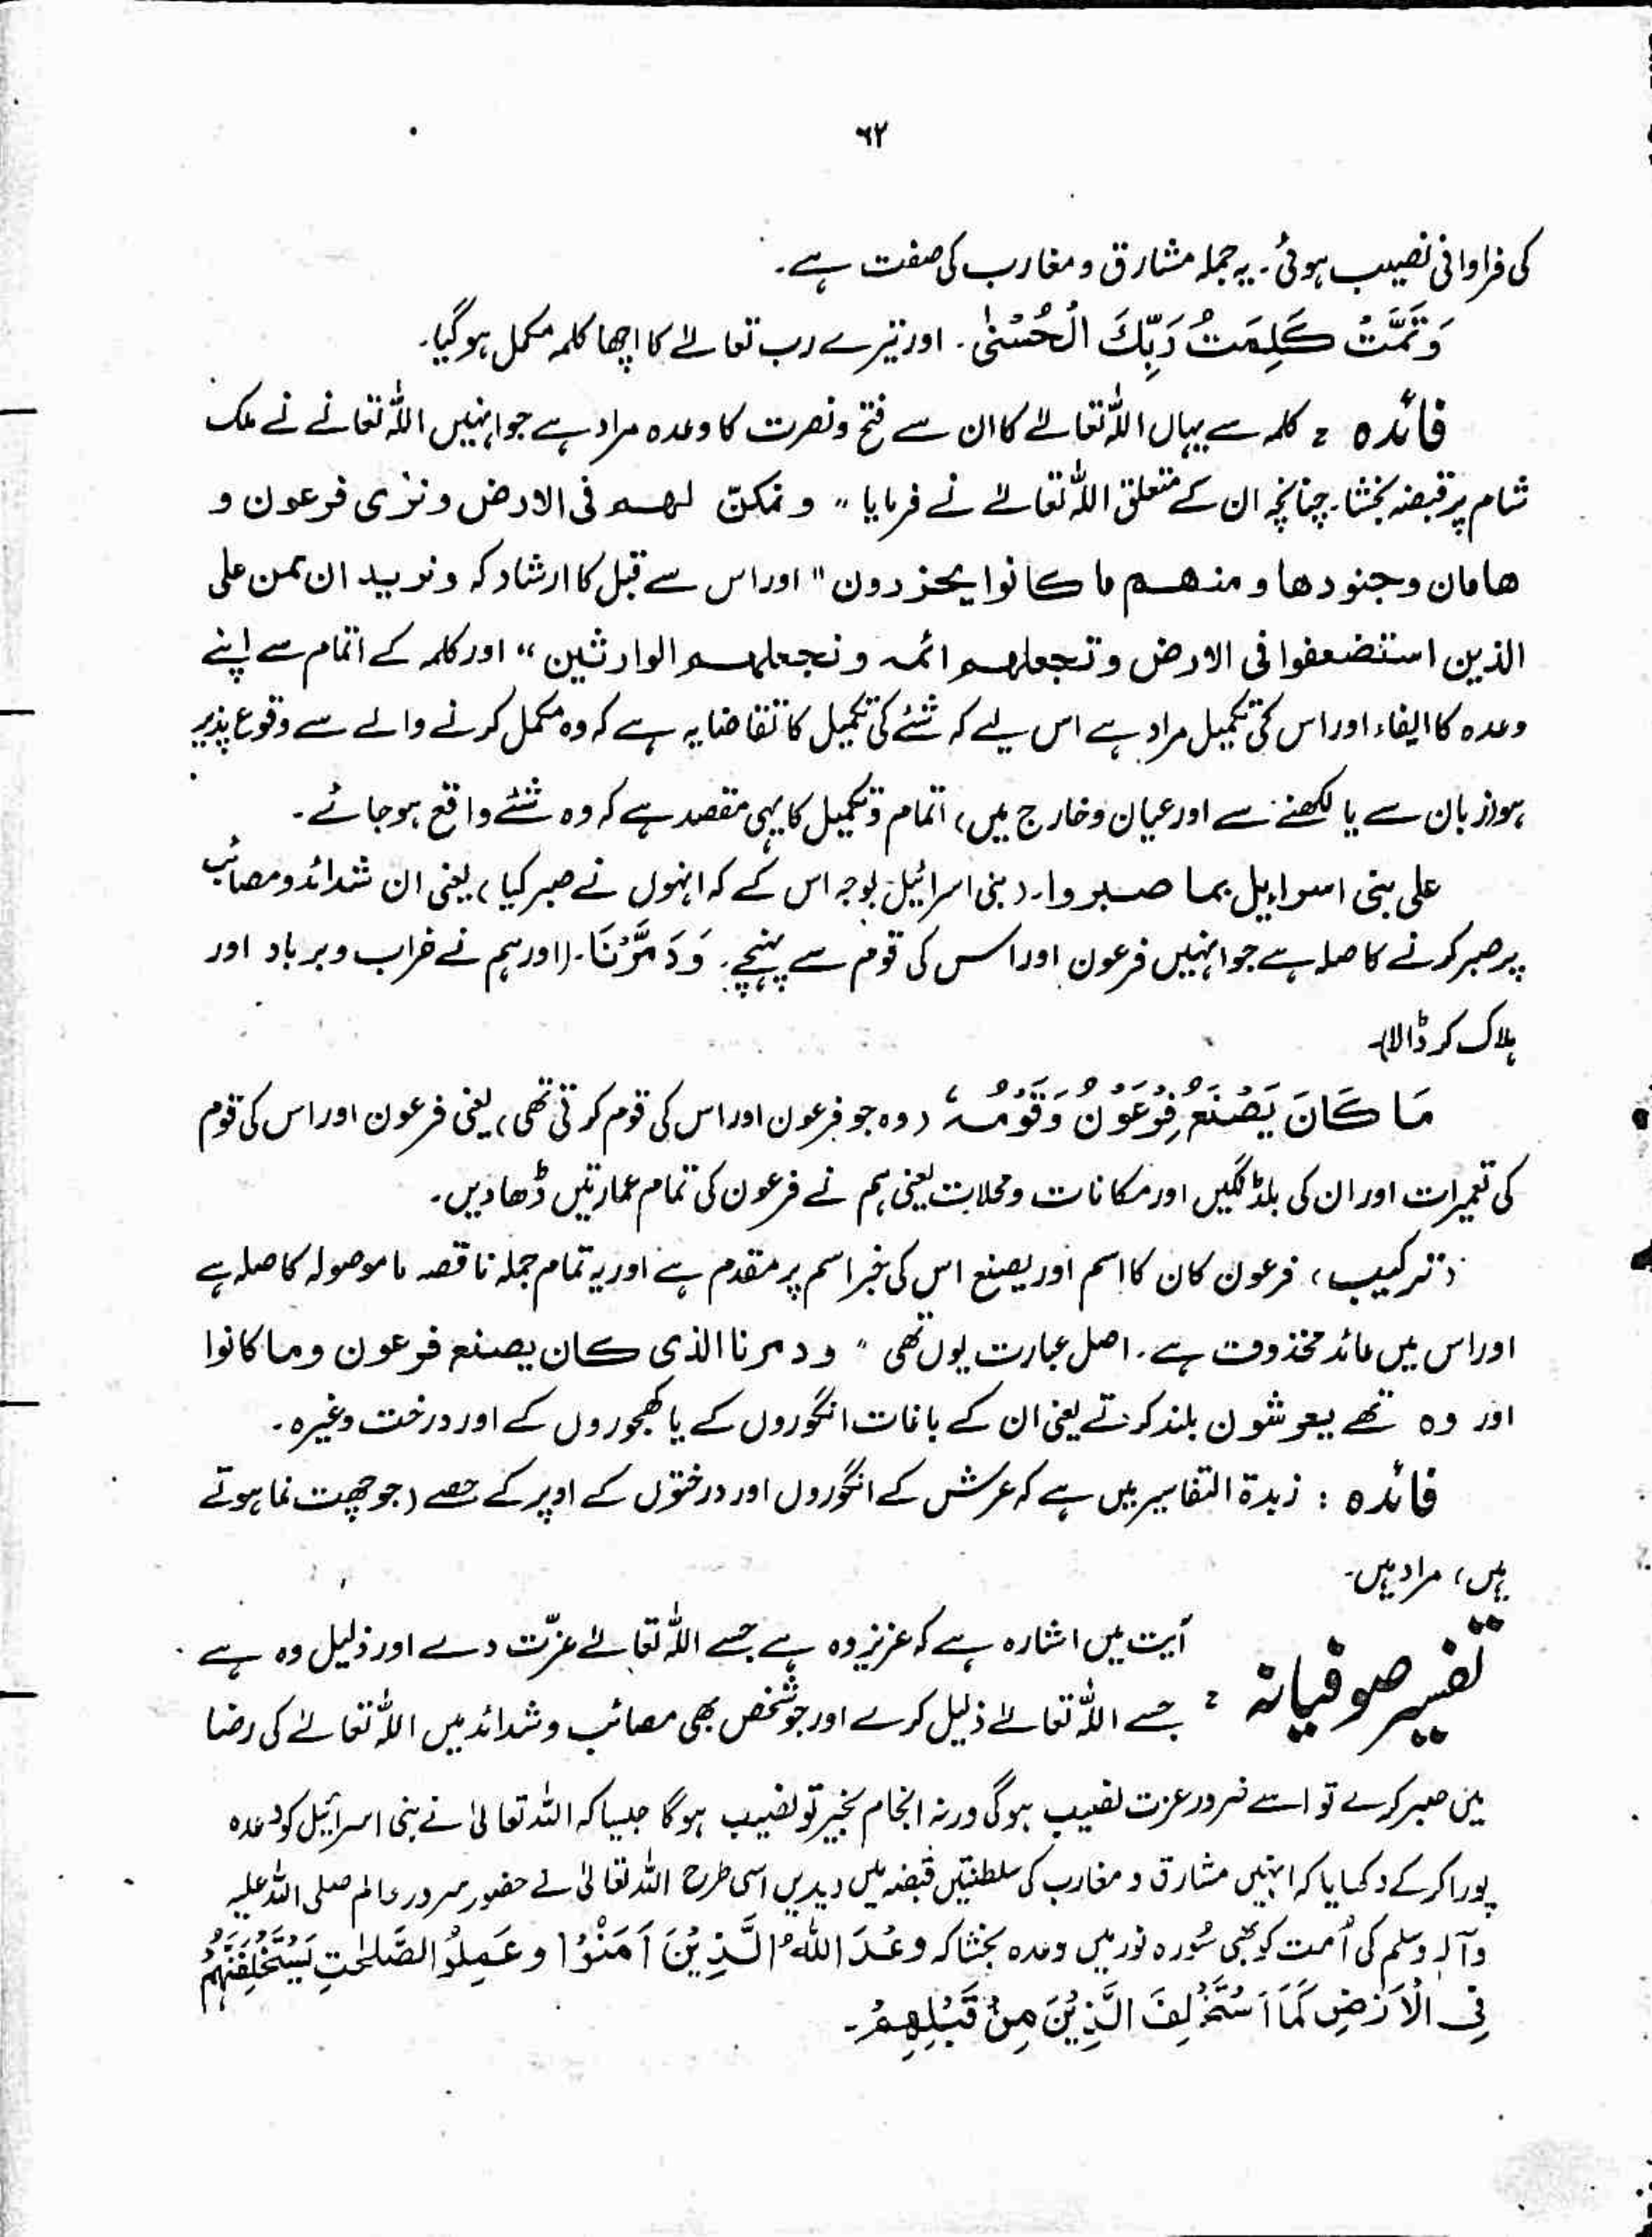 ٦٢
کی فراوانی نصیب ہوئی۔ یہ جملہ مشارق و مغارب کی صفت ہے۔
وَتَمَّتْ كَلِمَتُ رَبِّكَ الْحُسْنٰى۔ اور تیرے رب تعالےٰ کا اچھا کلمہ مکمل ہوگیا۔
فائدہ : کلمہ سے یہاں اللہ تعالےٰ کا ان سے فتح و نصرت کا وعدہ مراد ہے جو انہیں اللہ تعالے نے ملک
شام پر قبضہ بخشا۔ چنانچہ ان کے متعلق اللہ تعالےٰ نے فرمایا " و نمکنّ لھم فی الارض ونری فرعون و
ھامان وجنودھا و منھم ما کانوا یحذرون" اور اس سے قبل کا ارشاد کہ ونرید ان نمن علی
الذین استضعفوا فی الارض و نجعلھم ائمہ و نجعلھم الوارثین" اور کلمہ کے اتمام سے اپنے
وعدہ کا ایفاء اور اس کی تکمیل مراد ہے اس لیے کہ شئے کی تکمیل کا تقاضا یہ ہے کہ وہ مکمل کرنے والے سے وقوع پذیر
ہو زبان سے یا لکھنے سے اور عیان و خارج میں، اتمام و تکمیل کا یہی مقصد ہے کہ وہ شئے واقع ہو جائے۔
علی بنی اسراءیل بما صبروا۔ (بنی اسرائیل بوجہ اس کے کہ انہوں نے صبر کیا) یعنی ان شدائد و مصائب
پر صبر کرنے کا صلہ ہے جو انہیں فرعون اور اس کی قوم سے پہنچے۔ وَدَمَّرْنَا۔ (اور ہم نے خراب و برباد اور
ہلاک کر ڈالا)۔
مَا كَانَ يَصْنَعُ فِرْعَوْنُ وَقَوْمُہٗ (وہ جو فرعون اور اس کی قوم کرتی تھی) یعنی فرعون اور اس کی قوم
کی تعمیرات اور ان کی بلڈنگیں اور مکانات و محلات یعنی ہم نے فرعون کی تمام عمارتیں ڈھا دیں۔
(ترکیب) فرعون کان کا اسم اور یصنع اس کی خبر اسم پر مقدم ہے اور یہ تمام جملہ ناقصہ ما موصولہ کا صلہ ہے
اور اس میں عائد محذوف ہے۔ اصل عبارت یوں تھی " ودمرنا الذی کان یصنعہ فرعون وما کانوا
اور وہ تھے یعرشون بلند کرتے یعنی ان کے باغات انگوروں کے یا کھجوروں کے اور درخت وغیرہ۔
فائدہ : زبدۃ التفاسیر میں ہے کہ عرش کے انگوروں اور درختوں کے اوپر کے حصے (جو چھت نما ہوتے
ہیں) مراد ہیں۔
تفسیر صوفیانہ : آیت میں اشارہ ہے کہ عزیز وہ ہے جسے اللہ تعالےٰ عزّت دے اور ذلیل وہ ہے
جسے اللہ تعالےٰ ذلیل کرے اور جو شخص بھی مصائب و شدائد میں اللہ تعالےٰ کی رضا
میں صبر کرے تو اسے ضرور عزت نصیب ہوگی ورنہ انجام بخیر تو نصیب ہوگا جیسا کہ اللہ تعالیٰ نے بنی اسرائیل کو وعدہ
پورا کرکے دکھایا کہ انہیں مشارق و مغارب کی سلطنتیں قبضہ میں دیدیں اسی طرح اللہ تعالیٰ نے حضور سرور عالم صلی اللہ علیہ
وآلہٖ وسلم کی اُمت کو بھی سُورہ نور میں وعدہ بخشا کہ وعَدَ اللّٰهُ الَّذِيْنَ اٰمَنُوْا وعَمِلُوا الصّٰلِحٰتِ لَيَسْتَخْلِفَنَّهُمْ
فِى الْاَرْضِ كَمَا اسْتَخْلَفَ الَّذِيْنَ مِنْ قَبْلِهِمْ۔